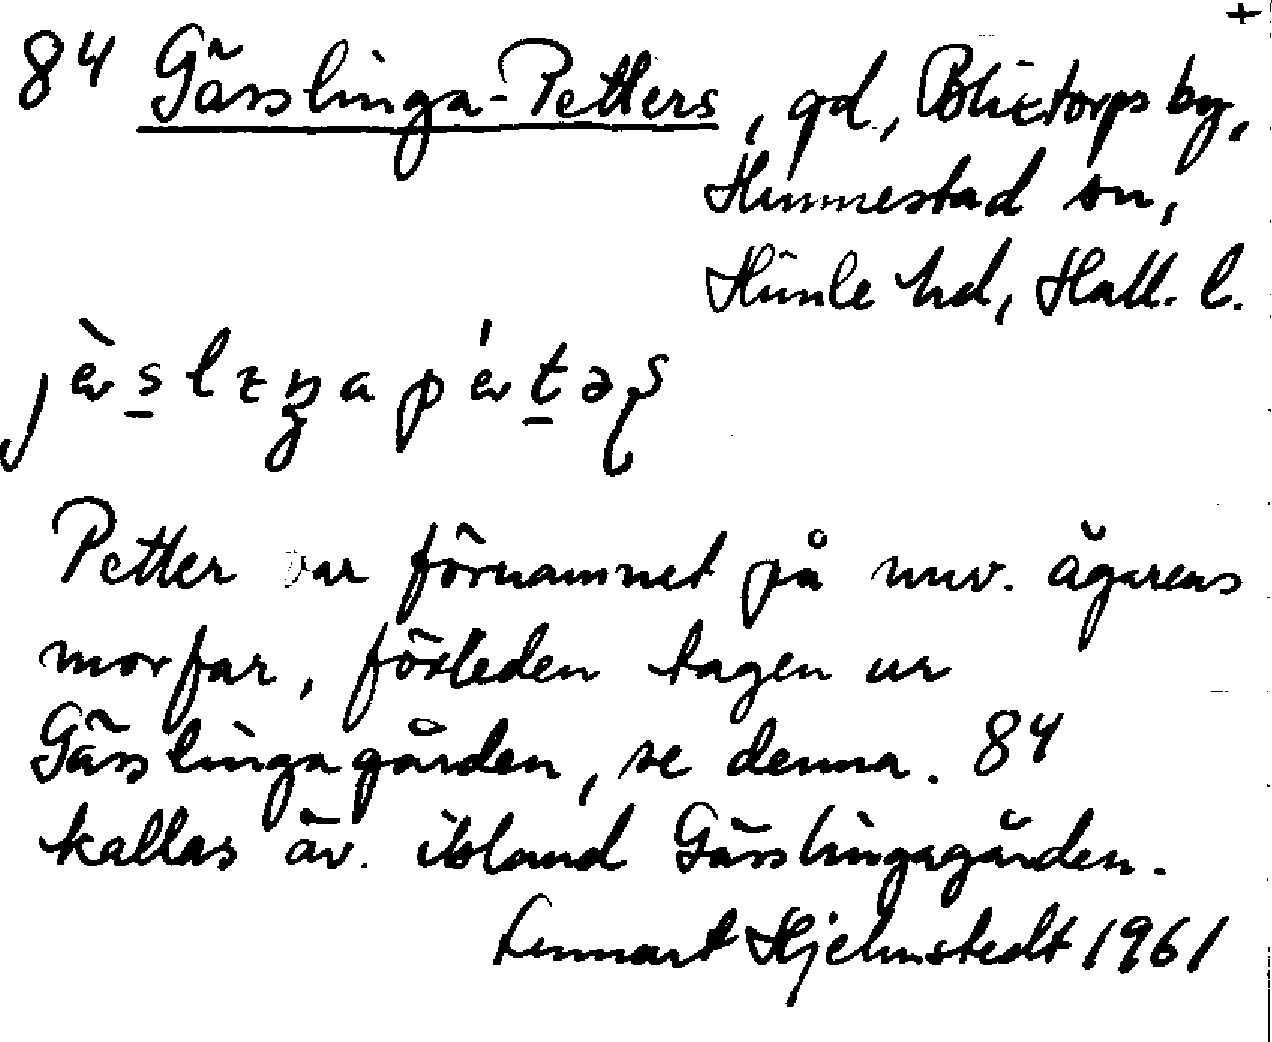 84 Gässlinga-Petters, gd., Blixtorps by,
Hunnestad sn,
Himle hd, Hall. l.
Petter var förnamnet på nuv. ägarens
morfar, förleden tagen ur
Gässlingagården, se denna. 84
kallas äv. ibland Gässlingagården.
Lennart Hjelmstedt 1961